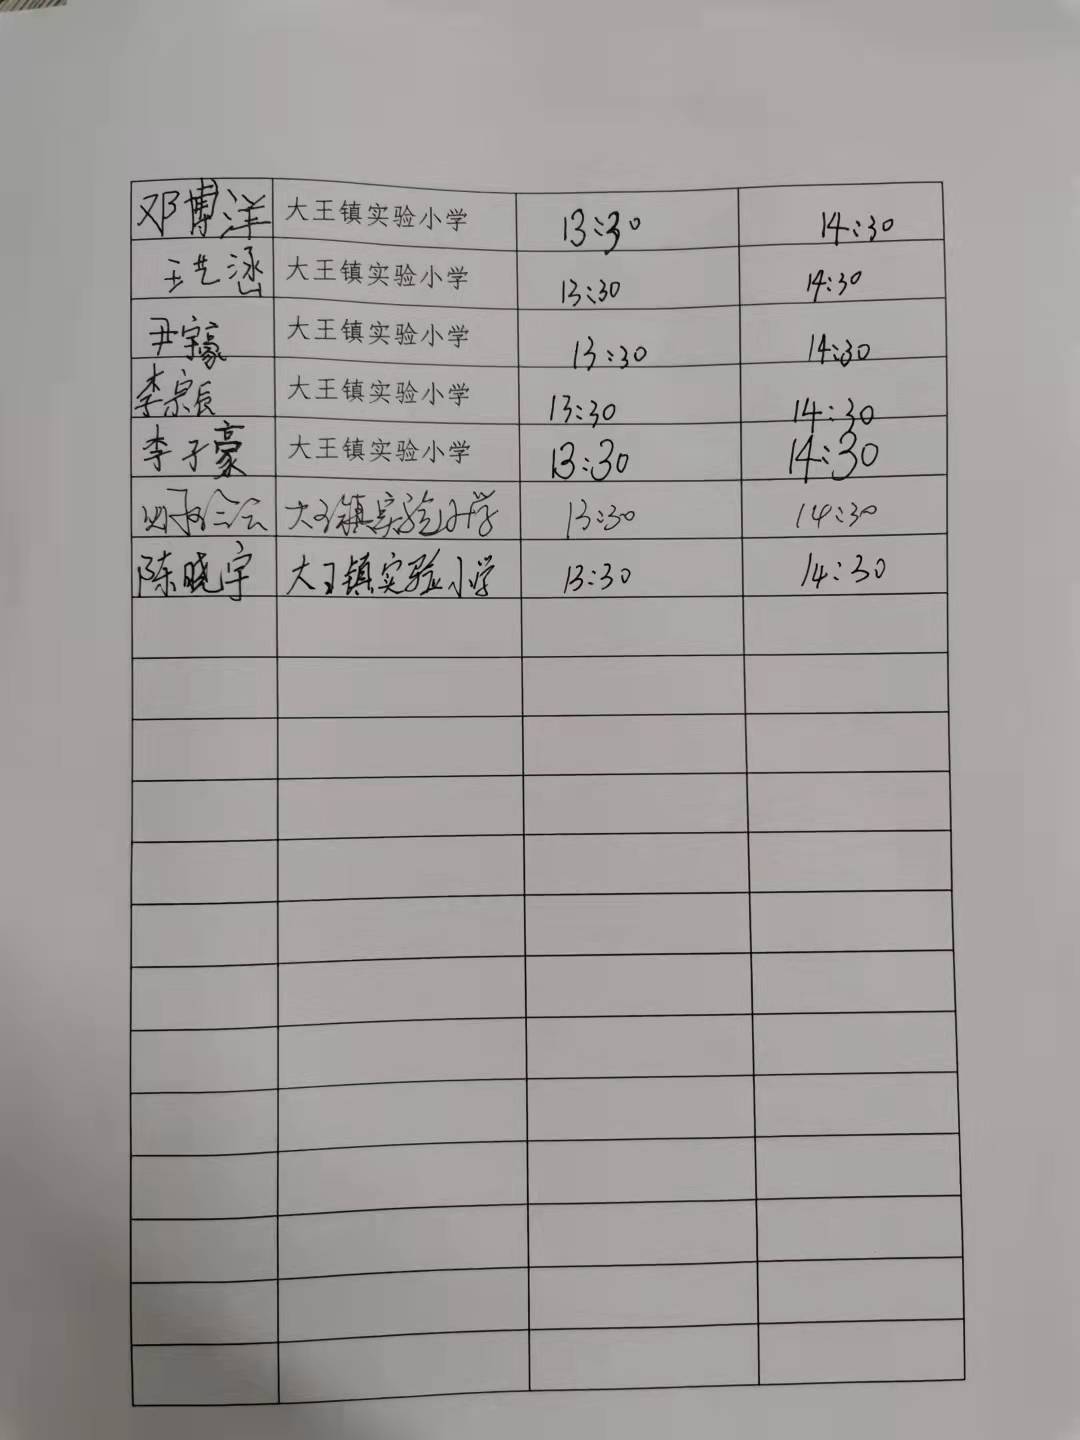 邓博洋 大王镇实验小学 13:30 14:30
王艺涵 大王镇实验小学 13:30 14:30
尹宇豪 大王镇实验小学 13:30 14:30
李宗辰 大王镇实验小学 13:30 14:30
李子豪 大王镇实验小学 13:30 14:30
大王镇实验小学 13:30 14:30
陈晓宇 大王镇实验小学 13:30 14:30